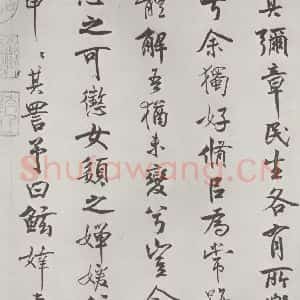 其彌章民生各有所樂
兮余獨好脩㠯為常雖
體解吾猶未變兮豈余
心之可懲女須之嬋媛
申〻其詈予曰鮌婞直
Shufawang.cn